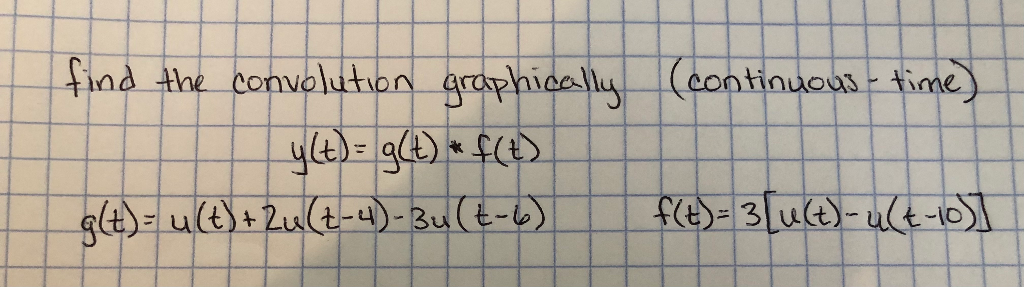 find the convolution graphically (continuous-time)
y(t)= g(t) * f(t)
g(t)= u(t)+2u(t-4)-3u(t-6) f(t)= 3[u(t)-u(t-10)]